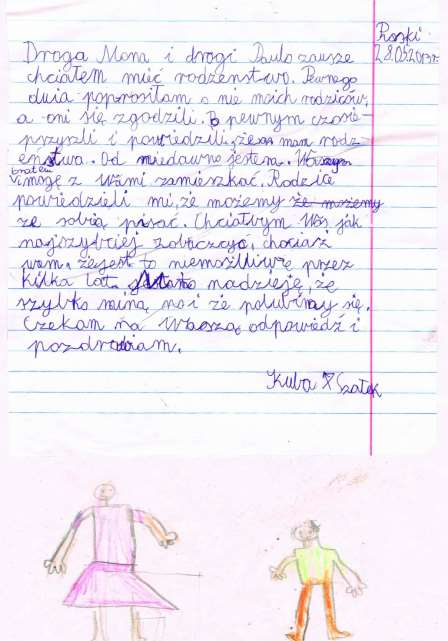 Puszki
28.05.2013r.
Droga Mona i drogi Paulo zausze
chciałem mieć rodzeństwo. Pewnego
dnia poprosiłam o nie moich rodziców,
a oni się zgodzili. P pewnym czasie
przyszli i powiedzili, że mam rodz-
eństwa. Od niedawna jestem. Waszym
bratem i mogę z Wami zamieszkać. Rodzice
powiedzieli mi, że możemy że możemy
ze sobią pisać. Chciałbym Was jak
najszybciej zobaczyć, chociarz
wiem, że jest to niemożliwe przez
kilka lat. Mam nadzieję, że
szybko miną, no i że polubimy się.
Czekam na Waszą odpowiedź i
pozdrawiam.
Kuba Szałek